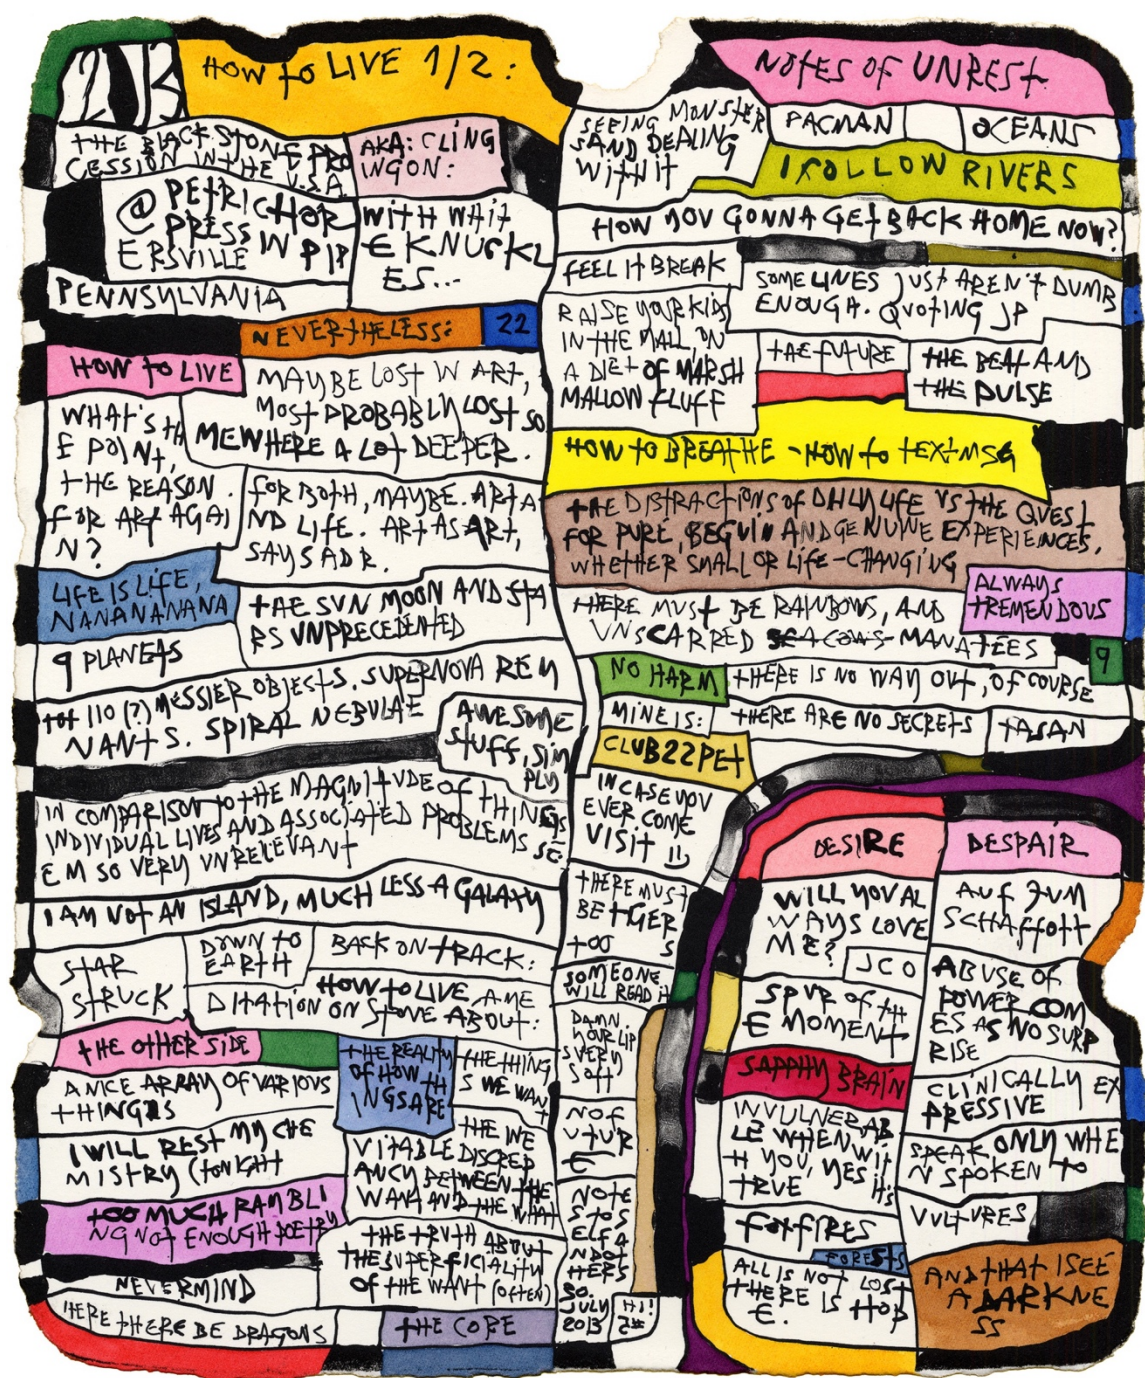 2013
HOW TO LIVE 1/2:
THE BLACK STONE PRO
CESSION IN THE U.S.A
AKA: CLING
INGON:
@ PETRICHOR
PRESS
IN PIP
ERSVILLE
WITH WHIT
E KNUCKL
ES...
PENNSYLVANIA
NEVERTHELESS:
22
HOW TO LIVE
MAYBE LOST IN ART,
MOST PROBABLY LOST SO
MEWHERE A LOT DEEPER.
WHAT'S TH
E POINT,
THE REASON.
FOR ART AGAI
N?
FOR BOTH, MAYBE. ART A
ND LIFE. ART AS ART,
SAYS ADR.
LIFE IS LIFE,
NANANANANA
THE SUN MOON AND STA
RS UNPRECEDENTED
9 PLANETS
TOT 110 (?) MESSIER OBJESTS. SUPERNOVA REM
NANTS. SPIRAL NEBULAE
AWESOME
STUFF, SIM
PLY
IN COMPARISON TO THE MAGNITUDE OF THINGS
INDIVIDUAL LIVES AND ASSOCIATED PROBLEMS SE
EM SO VERY UNRELEVANT
I AM NOT AN ISLAND, MUCH LESS A GALAXY
STAR
STRUCK
DOWN TO
EARTH
BACK ON TRACK:
HOW TO LIVE, A ME
DITATION ON STONE ABOUT:
THE OTHER SIDE
A NICE ARRAY OF VARIOUS
THINGS
I WILL REST MY CHE
MISTRY (TONIGHT
TOO MUCH RAMBLI
NG NOT ENOUGH POETRY
NEVERMIND
HERE THERE BE DRAGONS
THE REALITY
OF HOW TH
INGS ARE
THE THING
S WE WANT
THE INE
VITABLE DISCREP
ANCY BETWEEN THE
WANT AND THE WHAT
THE TRUTH ABOUT
THE SUPERFICIALITY
OF THE WANT (OFTEN)
THE CORE
NOTES OF UNREST
SEEING MONSTER
S AND DEALING
WITH IT
PACMAN
OCEANS
I FOLLOW RIVERS
HOW YOU GONNA GET BACK HOME NOW?
FEEL IT BREAK
SOME LINES JUST AREN'T DUMB
ENOUGH. QUOTING JP
RAISE YOUR KIDS
IN THE MALL, ON
A DIET OF MARSH
MALLOW FLUFF
THE FUTURE
THE BEAT AND
THE PULSE
HOW TO BREATHE - HOW TO TEXTMSG
THE DISTRACTIONS OF DAILY LIFE VS THE QUEST
FOR PURE, AND GENUINE EXPERIENCES,
WHETHER SMALL OR LIFE-CHANGING
ALWAYS
TREMENDOUS
THERE MUST BE RAINBOWS, AND
UNSCARRED SEA COWS MANATEES
9
NO HARM
THERE IS NO WAY OUT, OF COURSE
MINE IS:
THERE ARE NO SECRETS
TASAN
CLUB22PET
IN CASE YOU
EVER COME
VISIT :)
THERE MUST
BE TIGER
S
TOO
SOMEONE
WILL READ IT
DAMN
YOUR LIP
S VERY
SOFT
NO F
UTUR
E
NOTE
S TO S
ELF A
ND OT
HERS
30.
JULY
2013
HI!
DESIRE
WILL YOU AL
WAYS LOVE
ME?
JCO
SPUR OF TH
E MOMENT
SAPPHY BRAIN
INVULNERAB
LE WHEN, WIT
H YOU, YES IT'S
TRUE
FOXFIRES
FORESTS
ALL IS NOT LOST
THERE IS HOP
E.
DESPAIR
AUF ZUM
SCHAFFOTT
ABUSE OF
POWER COM
ES AS NO SURP
RISE
CLINICALLY EX
PRESSIVE
SPEAK ONLY WHE
N SPOKEN TO
VULTURES
AND THAT I SEE
A DARKNE
SS